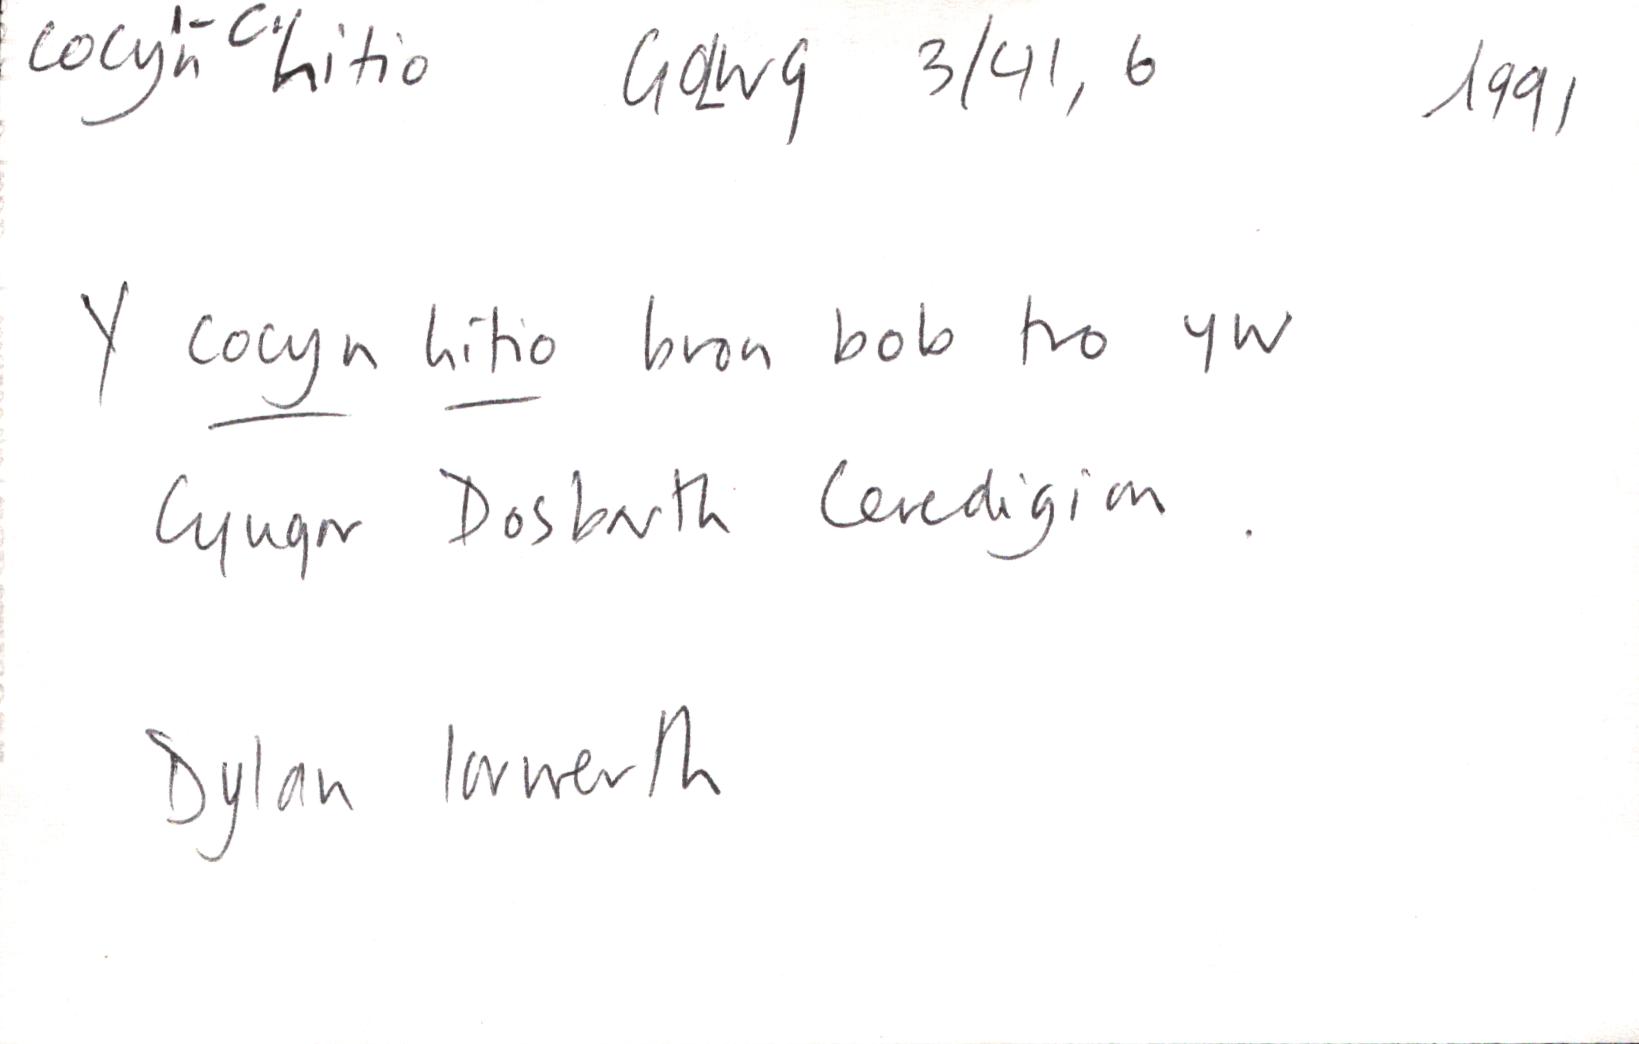 cocyn¹⁻ c. hitio Golwg 3/41, 6 1991
Y cocyn hitio bron bob tro yw
Cyngor Dosbarth Ceredigion.
Dylan Iorwerth